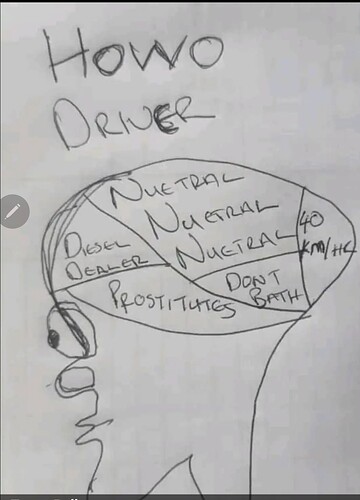 HOWO
DRIVER
NUETRAL
NUETRAL
NUETRAL
40
KM/HR
DIESEL
DEALER
PROSTITUTES
DONT
BATH